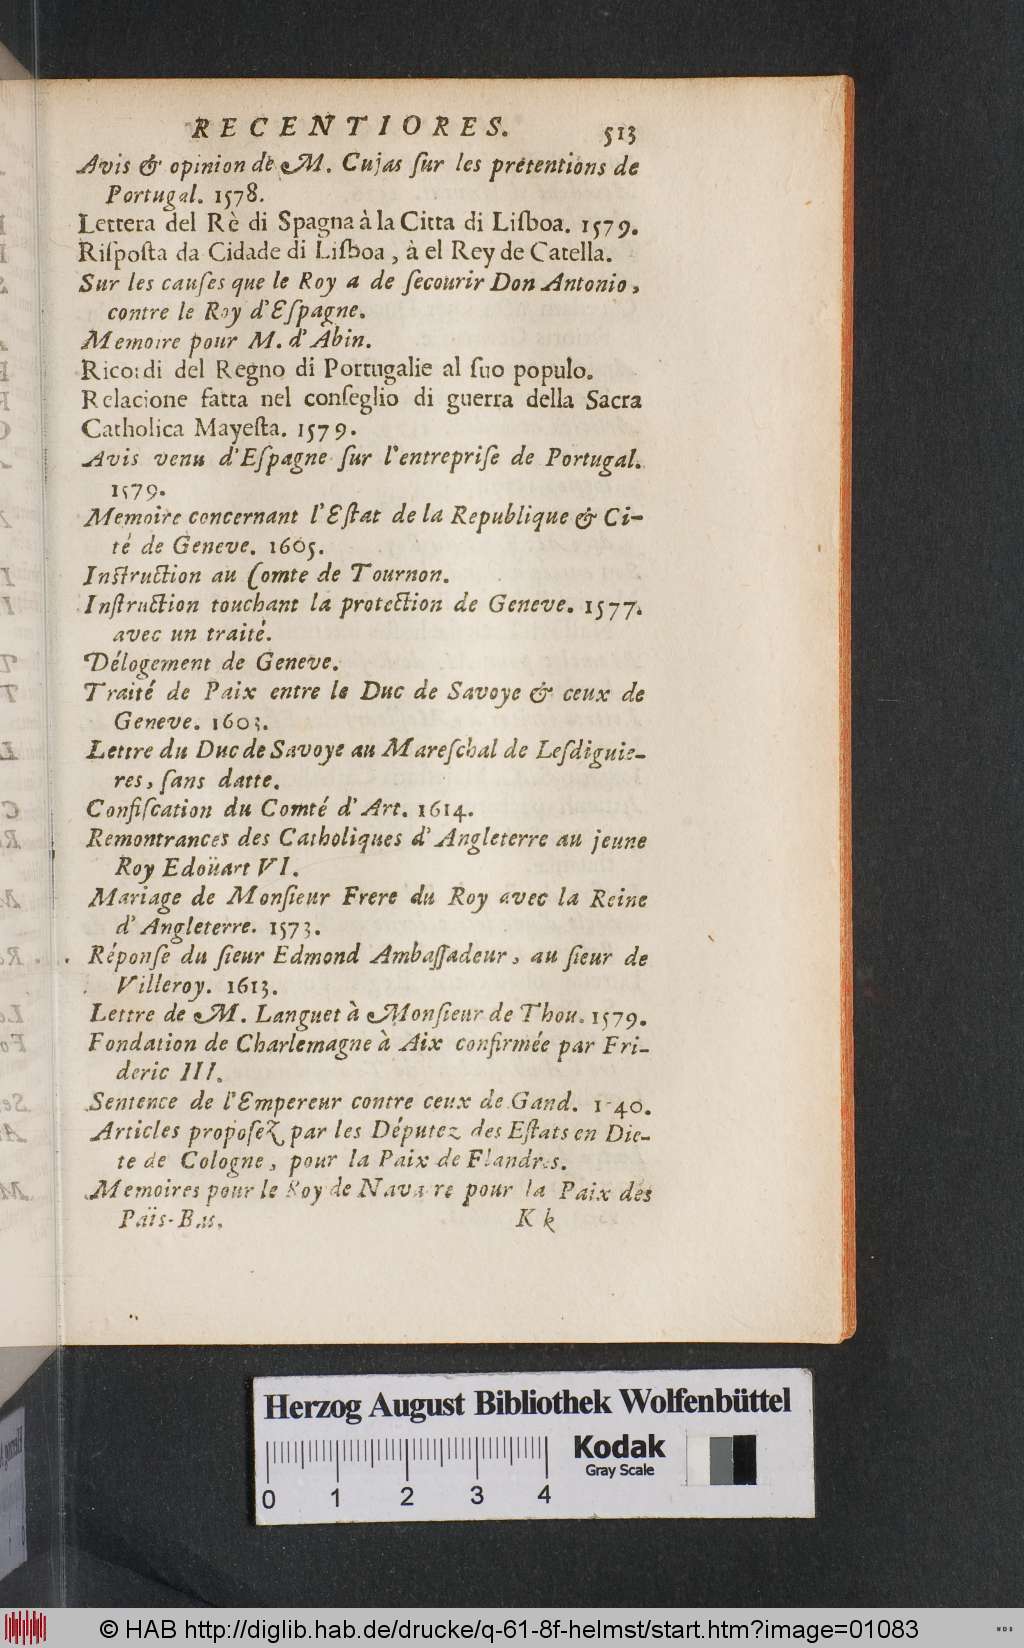 RECENTIORES. 513
Avis & opinion de M. Cujas ſur les prétentions de
Portugal. 1578.
Lettera del Rè di Spagna à la Citta di Liſboa. 1579.
Riſpoſta da Cidade di Liſboa, à el Rey de Catella.
Sur les cauſes que le Roy a de ſecourir Don Antonio,
contre le Roy d'Eſpagne.
Memoire pour M. d'Abin.
Ricordi del Regno di Portugalie al ſuo populo.
Relacione fatta nel conſeglio di guerra della Sacra
Catholica Mayeſta. 1579.
Avis venu d'Eſpagne ſur l'entrepriſe de Portugal.
1579.
Memoire concernant l'Eſtat de la Republique & Ci-
té de Geneve. 1605.
Inſtruction au Comte de Tournon.
Inſtruction touchant la protection de Geneve. 1577.
avec un traité.
Délogement de Geneve.
Traité de Paix entre le Duc de Savoye & ceux de
Geneve. 1603.
Lettre du Duc de Savoye au Mareſchal de Leſdiguie-
res, ſans datte.
Confiſcation du Comté d'Art. 1614.
Remontrances des Catholiques d'Angleterre au jeune
Roy Edoüart VI.
Mariage de Monſieur Frere du Roy avec la Reine
d'Angleterre. 1573.
Réponſe du ſieur Edmond Ambaſſadeur, au ſieur de
Villeroy. 1613.
Lettre de M. Languet à Monſieur de Thou. 1579.
Fondation de Charlemagne à Aix confirmée par Fri-
deric III.
Sentence de l'Empereur contre ceux de Gand. 1540.
Articles propoſez par les Députez des Eſtats en Die-
te de Cologne, pour la Paix de Flandres.
Memoires pour le Roy de Navarre pour la Paix des
Païs-Bas. K k
Herzog August Bibliothek Wolfenbüttel
Kodak
Gray Scale
0 1 2 3 4
© HAB http://diglib.hab.de/drucke/q-61-8f-helmst/start.htm?image=01083